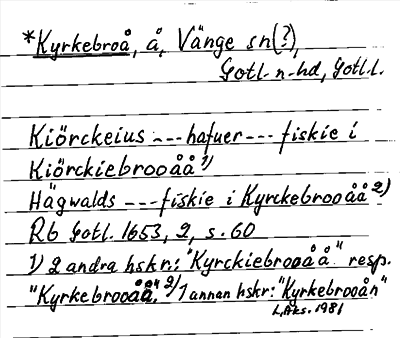 *Kyrkebroå, å, Vänge sn(?),
Gotl. n-hd, Gotl.l.
Kiörckeius --- hafuer --- fiskie i
Kiörckiebrooåå 1)
Hägwalds --- fiskie i Kyrckebrooåå 2)
Rb Gotl. 1653, 2, s. 60
1) 2 andra hskr: "Kyrckiebrooåå" resp.
"Kyrkebrooåå". 2) 1 annan hskr: "Kyrkebrooån"
L,Aks. 1981